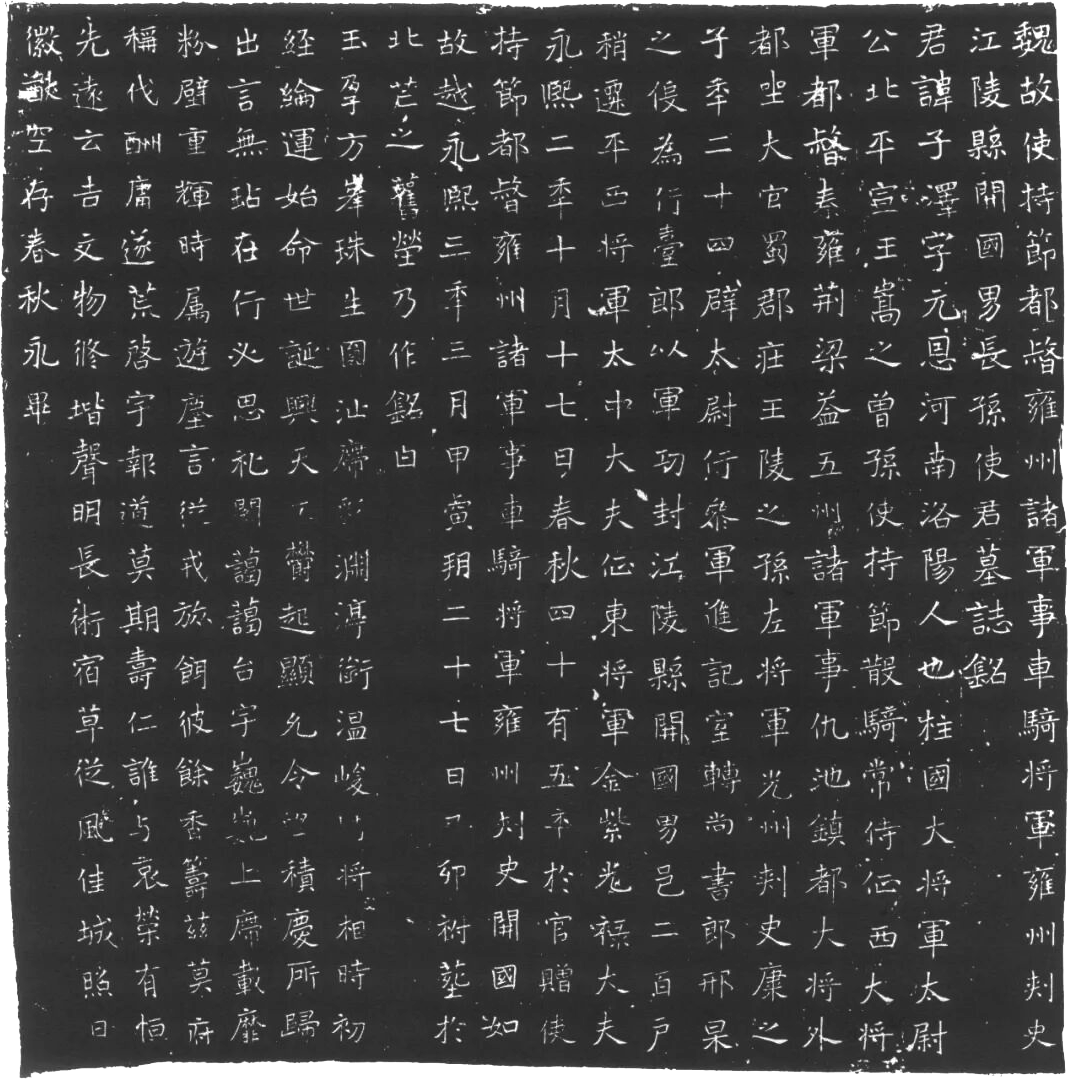 魏故使持節都督雍州諸軍事車騎將軍雍州刾史
江陵縣開國男長孫使君墓誌銘
君諱子澤字元恩河南洛陽人也柱國大將軍太尉
公北平宣王嵩之曾孫使持節散騎常侍征西大將
軍都督秦雍荊梁益五州諸軍事仇池鎮都大將外
都坐大官蜀郡莊王陵之孫左將軍光州刾史廉之
子年二十四辟太尉行參軍進記室轉尚書郎邢杲
之役為行臺郎以軍功封江陵縣開國男邑二百戶
稍遷平西將軍太中大夫征東將軍金紫光祿大夫
永熙二年十月十七日春秋四十有五卒於官贈使
持節都督雍州諸軍事車騎將軍雍州刾史開國如
故越永熙三年三月甲寅朔二十七日卯祔塟於
北芒之舊塋乃作銘曰
玉孕方峯珠生圓沚席淵渟衡温峻將相時初
經綸運始命世誕興天欝起顯允令望積慶所歸
出言無玷在行必思礼闈藹藹台宇巍巍上席載靡
粉壁重輝時属遊塵言從戎旅餌彼餘香籌茲莫府
稱代酬庸遂荒啓宇報道莫期壽仁誰与哀榮有恒
先遠云吉文物脩堦聲明長術宿草從颷佳城照日
徽猷空存春秋永畢